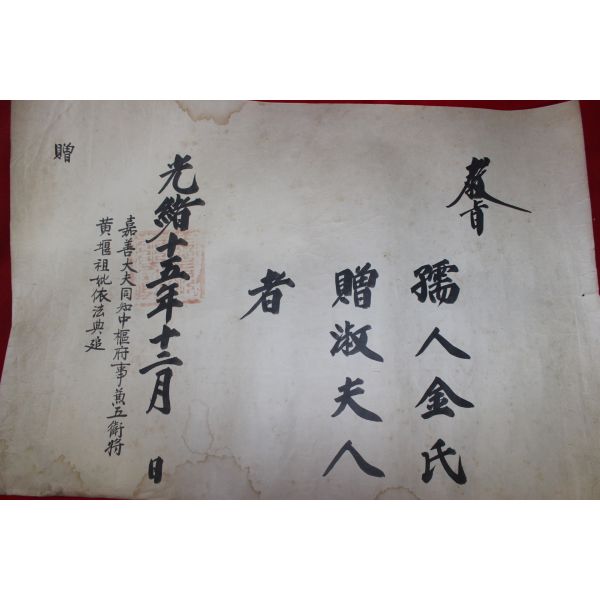 教旨
孺人金氏
贈淑夫人
者
光緖十五年十二月 日
嘉善大夫同知中樞府事兼五衛將
黃堰祖妣依法典追
贈